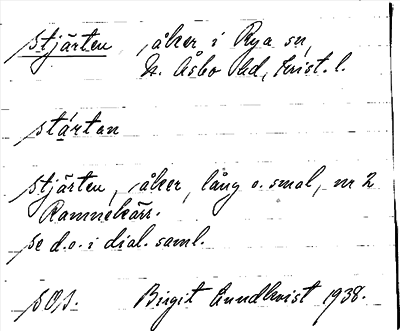 Stjärten, åker i Rya sn,
N. Åsbo hd, Krist. l.
stártan
Stjärten, åker, lång o. smal, nr 2
Ramnekärr.
Se d.o. i dial. saml.
SOJ. Birgit Lundkvist 1938.